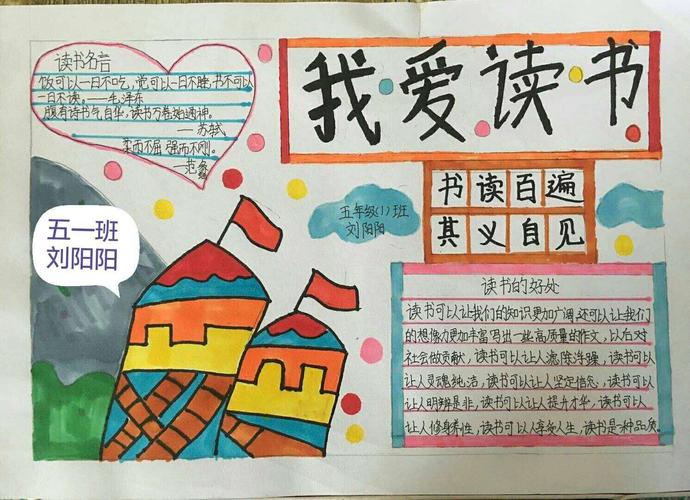 读书名言
饭可以一日不吃，觉可以一日不睡，书不可以
一日不读。——毛泽东
腹有诗书气自华，读书万卷始通神。
——苏轼
柔而不屈 强而不刚。
我爱读书
书读百遍
其义自见
五年级(1)班
刘阳阳
五一班
刘阳阳
读书的好处
读书可以让我们的知识更加广阔，还可以让我们
的想像力更加丰富，写出一些高质量的作文，以后对
社会做贡献，读书可以让人涤除浮躁，读书可以
让人灵魂纯洁，读书可以让人坚定信念，读书可以
让人明辨是非，读书可以让人提升才华，读书可以
让人修身养性，读书可以人享受人生，读书是一种品质。